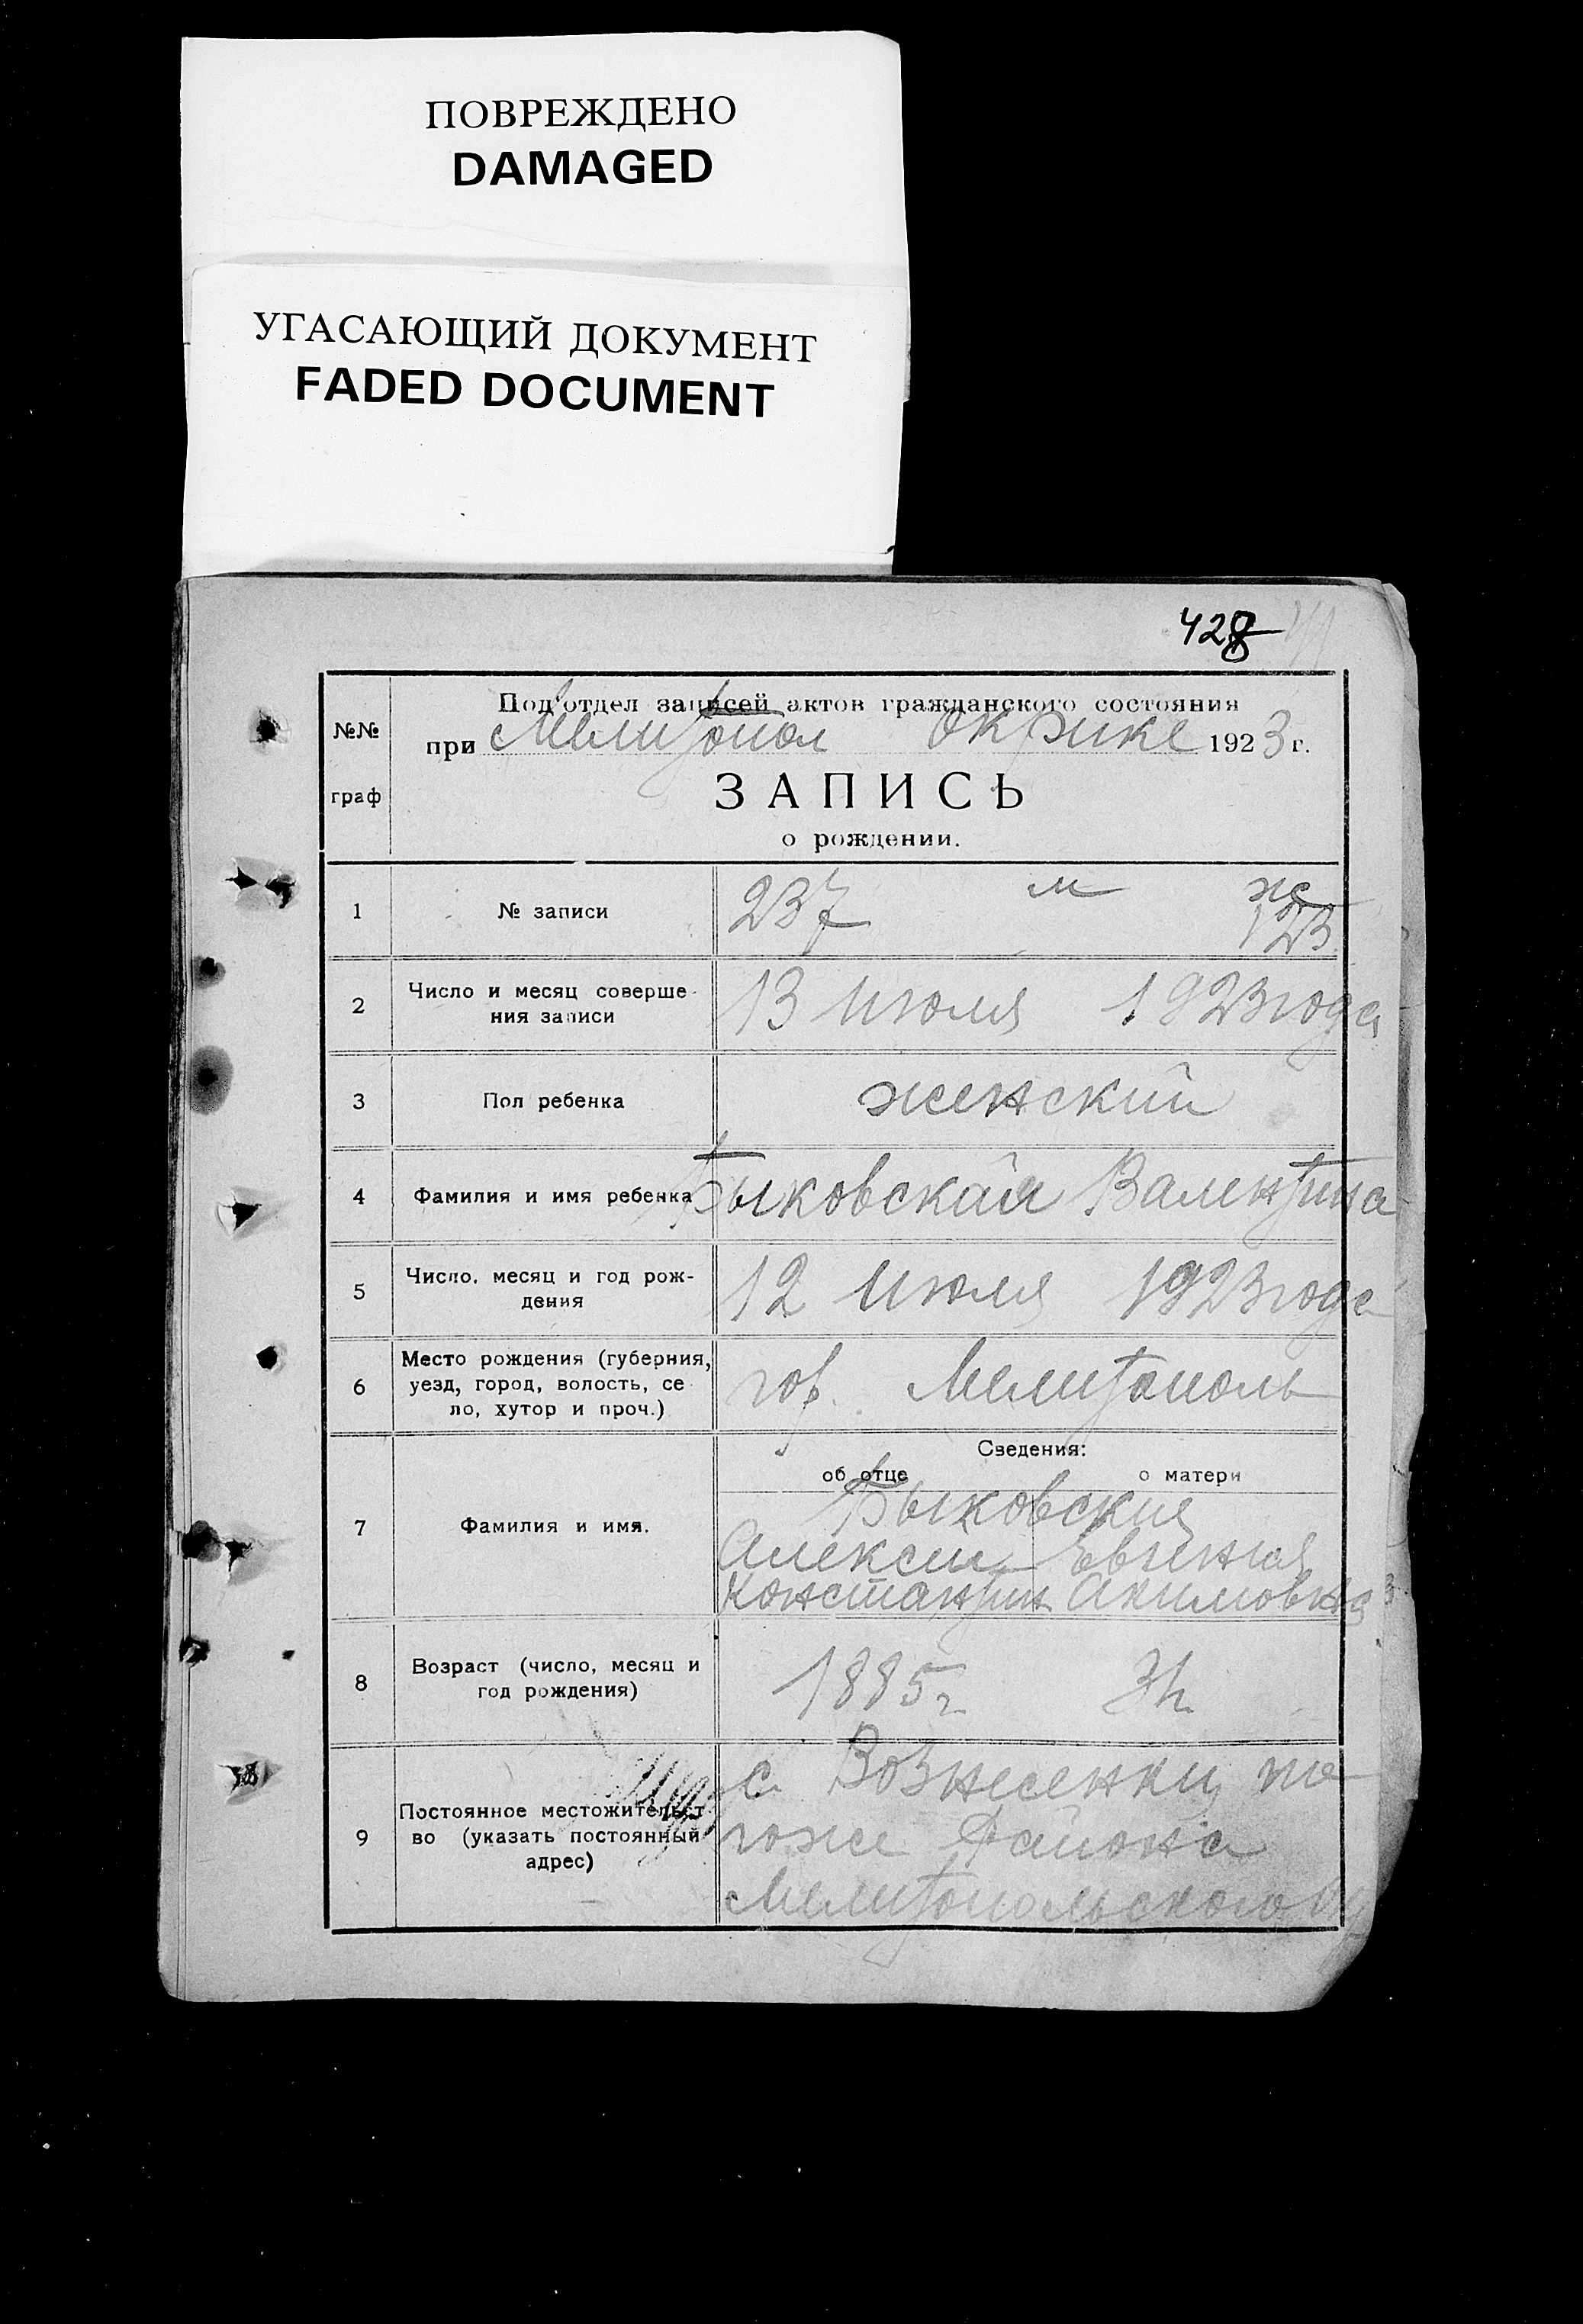 ПОВРЕЖДЕНО
DAMAGED
УГАСАЮЩИЙ ДОКУМЕНТ
FADED DOCUMENT
428
№№
граф
Под'отдел записей актов гражданского состояния
при Мелитопол Окрике 1923 г.
ЗАПИСЬ
о рождении.
1
№ записи
237 м ж
123
2
Число и месяц соверше-
ния записи
13 июля 1923 года
3
Пол ребенка
женский
4
Фамилия и имя ребенка
Быковская Валентина
5
Число, месяц и год рож-
дения
12 июля 1923 года
6
Место рождения (губерния,
уезд, город, волость, се
ло, хутор и проч.)
гор. Мелитополь
Сведения:
об отце о матери
7
Фамилия и имя.
Быковские
Алексей Евгения
Константин Акимовна
8
Возраст (число, месяц и
год рождения)
1885 г.
9
Постоянное местожительст
во (указать постоянный
адрес)
с. Вознесенки то
гоже Района
Мелитопольского